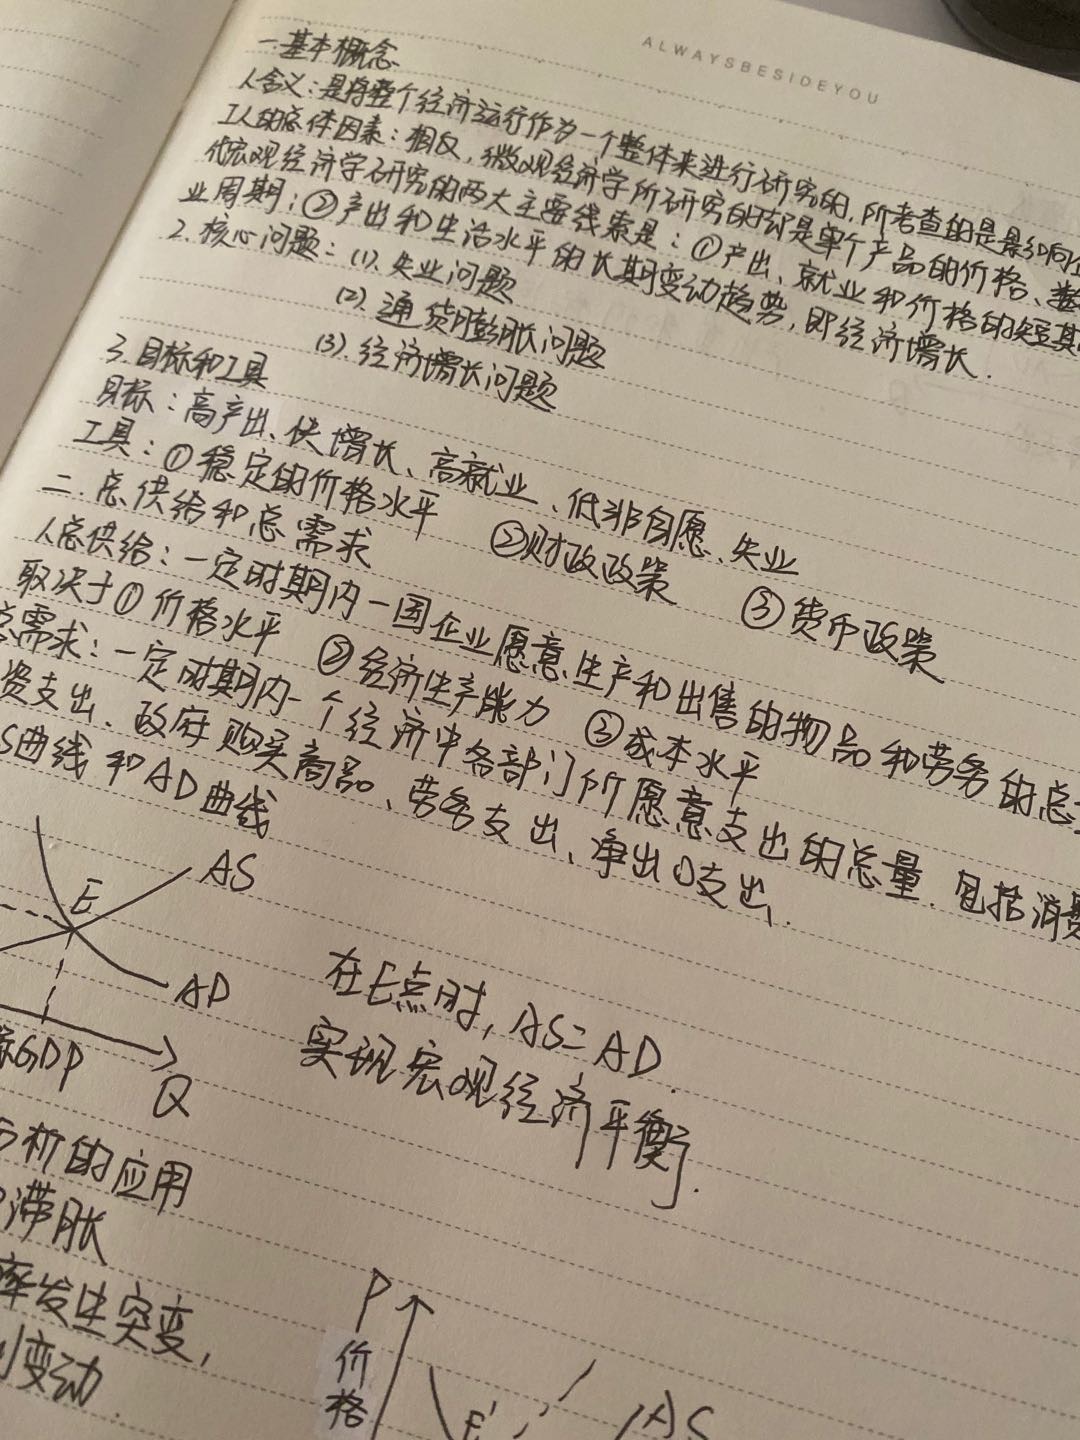 ALWAYSBESIDEYOU
一.基本概念
1.含义:是将整个经济运行作为一个整体来进行研究的,所考查的是影响企
工人的总体因素:相反,微观经济学所研究的却是单个产品的价格、数
代宏观经济学研究的两大主要线索是:①产出、就业和价格的短期
业周期;②产出和生活水平的长期变动趋势,即经济增长.
2.核心问题:(1).失业问题
(2).通货膨胀问题
(3).经济增长问题
3.目标和工具
目标:高产出、快增长、高就业、低非自愿、失业
工具:①稳定的价格水平 ②财政政策 ③货币政策
二.总供给和总需求
1.总供给:一定时期内一国企业愿意生产和出售的物品和劳务的总
取决于①价格水平 ②经济生产能力 ③成本水平
总需求:一定时期内一个经济中各部门所愿意支出的总量.包括消费
资支出、政府购买商品、劳务支出、净出口支出.
S曲线和AD曲线
AS
E
AD
GDP
Q
在E点时,AS=AD.
实现宏观经济平衡.
析的应用
滞胀
率发生突变,
变动.
P
价格
E'
AS